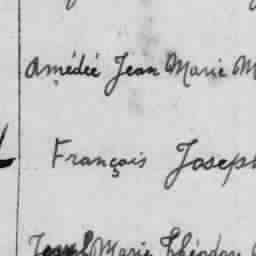 Amédée Jean Marie M
François Joseph
Joseph Marie Théodore